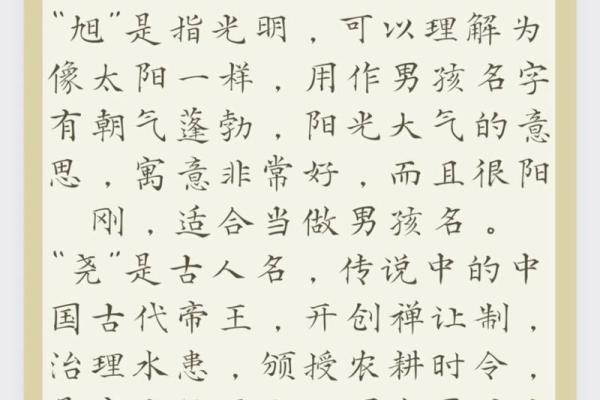 “旭”是指光明，可以理解为
像太阳一样，用作男孩名字
有朝气蓬勃，阳光大气的意
思，寓意非常好，而且很阳
刚，适合当做男孩名。
“尧”是古人名，传说中的中
国古代帝王，开创禅让制，
治理水患，颁授农耕时令，